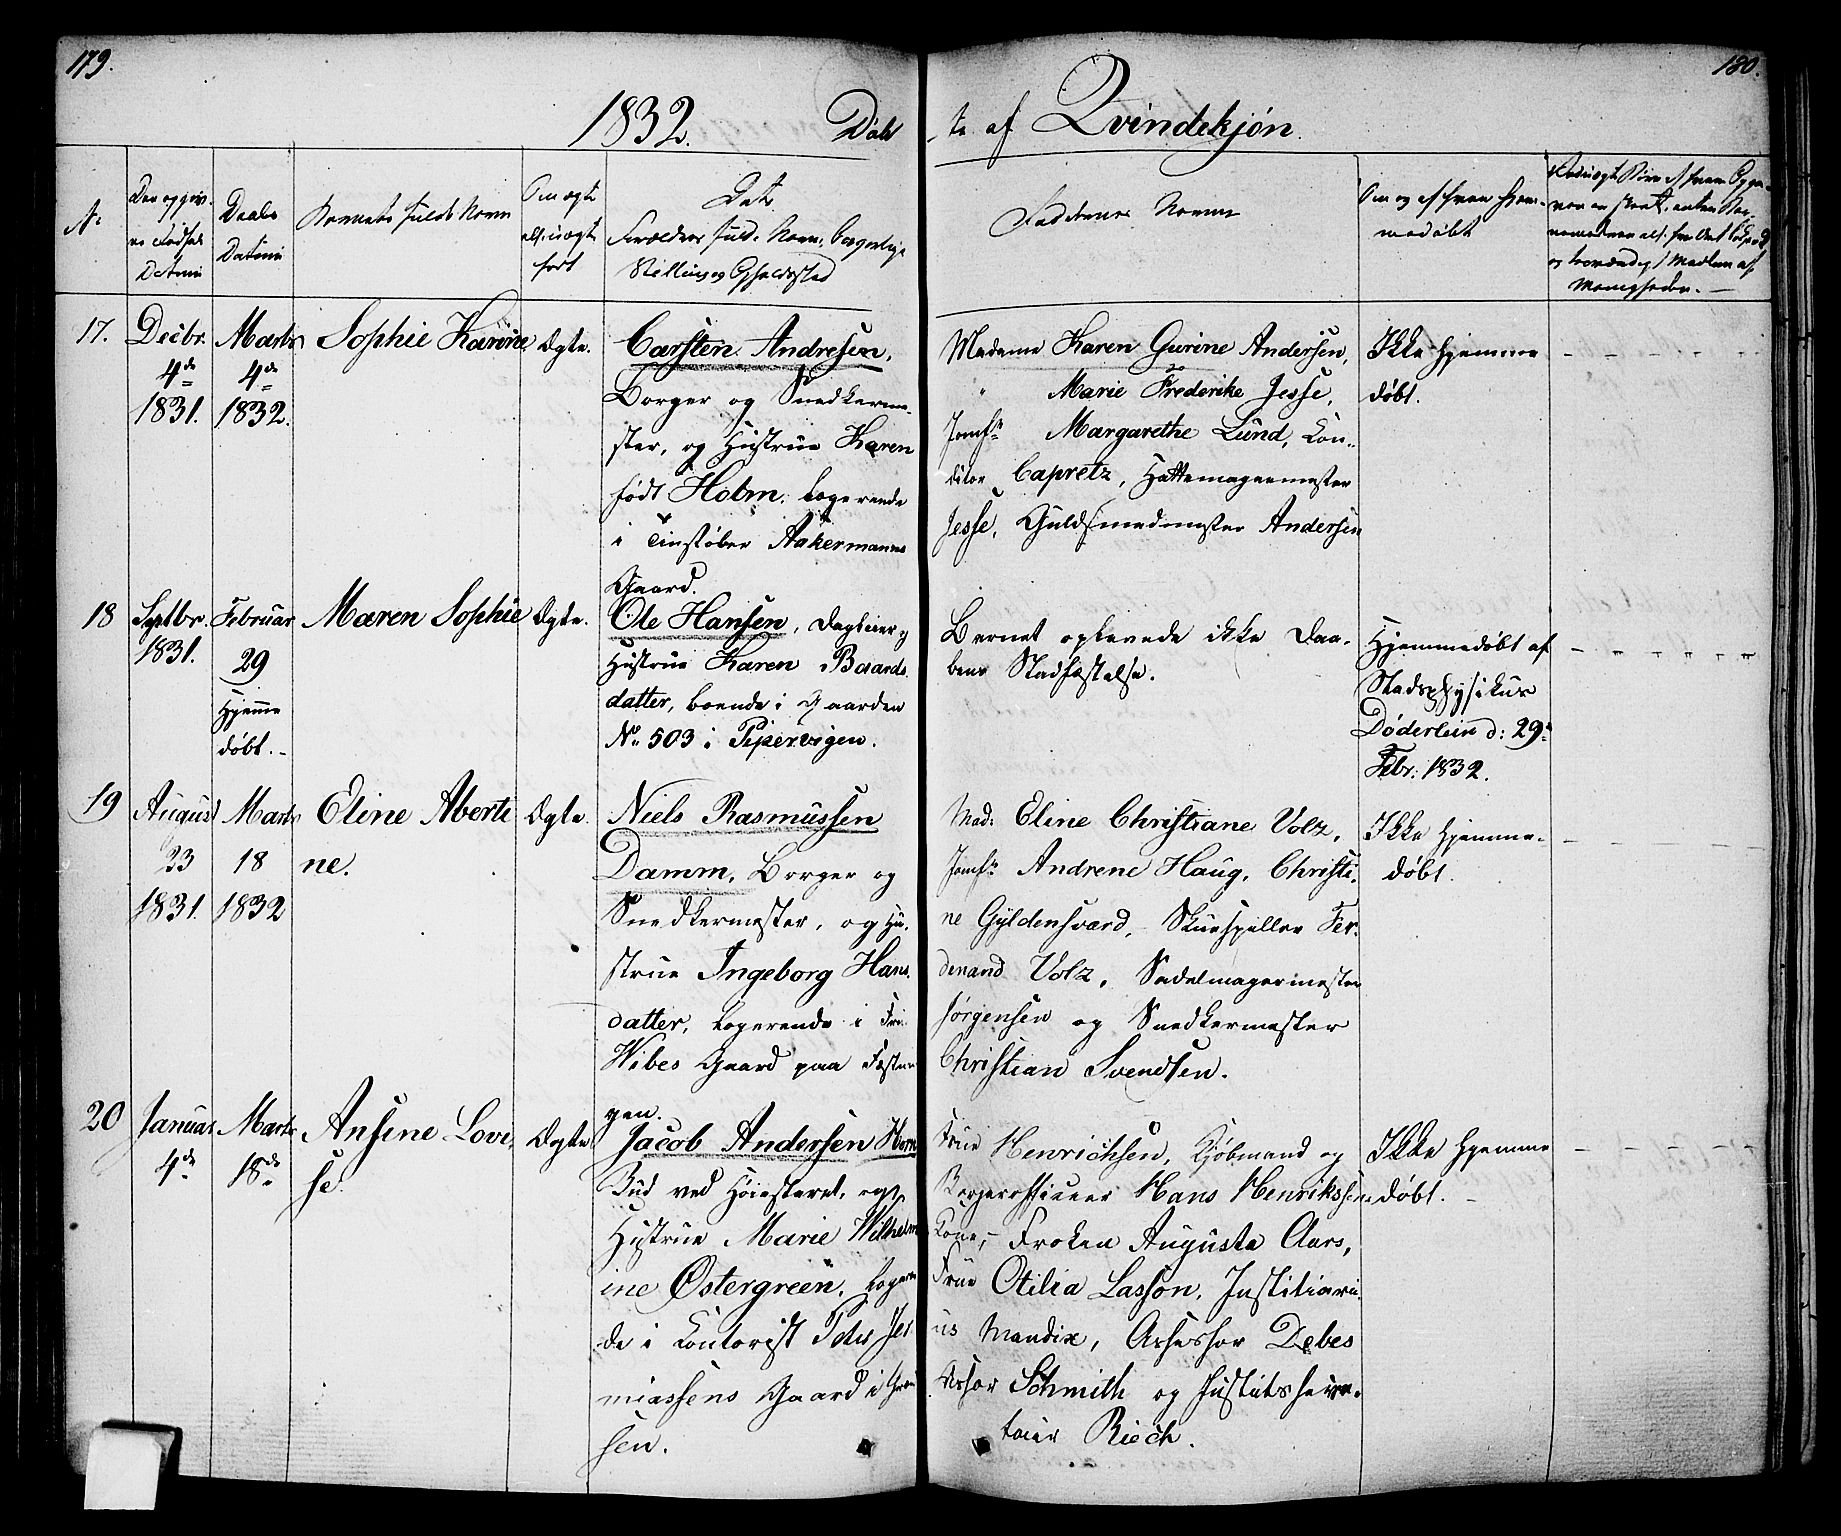 179.
180.
1832. Døb-
te af Qvindekjøn.
No
Den opgiv-
ne Fødsels
Datum
Daabs
Datum
Barnets fulde Navn
Om ægte
ell: uægte
født
Det's
Forældres fuld: Navn, borgerlige
Stilling og Opholdssted
Faddernes Navne
Om og af hvem hjem-
medøbt
17.
Decbr.
4de
1831.
Marts
4de
1832.
Sophie Karine
Ægte.
Carsten Andresen,
Borger og Snedkerme-
ster, og Hustrue Karen
født Holm, logerende
i Tinstøber Aakermanns
Gaard.
Madame Karen Gurine Andersen,
" Marie Frederike Jesse,
Jomfr: Margarethe Lund, Con-
ditor Capretz, Hattemagermester
Jesse, Guldsmedmester Andersen
Ikke hjemme
døbt.
18
Septbr.
1831.
Februar
29
Hjemme
døbt.
Maren Sophie
Ægte.
Ole Hansen, Dagleier og
Hustrue Karen Baards-
datter, boende i Gaarden
No 503 i Pipervigen.
Barnet oplevede ikke Daa-
bens Stadfæstelse.
Hjemmedøbt af
Stadsphysikus
Døderlein d: 29de
Febr: 1832.
19
August
23
1831.
Marts
18
1832
Eline Aberti
ne.
Ægte.
Niels Rasmussen
Damm, Borger og
Snedkermester, og Hu-
strue Ingeborg Hans
datter, logerende i
Wibes Gaard paa Fæstnin
gen.
Mad: Eline Christiane Volz,
Jomfr: Andrene Haug, Christi-
ne Gyldensvard, Skuespiller Fer-
denand Volz, Sadelmagermester
Jørgensen og Snedkermester
Christian Svendsen.
Ikke hjemme-
døbt.
20
Januar
4de
Marts
18de
Ansine Lovi,
se.
Ægte
Jacob Andersen Horn
Bud ved Høiesteret, og
Hustrue Marie Wilhelm
ine Østergreen, logeren
de i Contorist Peder Jer
miassens Gaard i
sen.
Frue Henrichsen, Kjøbmand og
Borgerofficeer Hans Henriksens
Kone, Frøken Augusta Aars,
Frue Otilia Lasson, Justitiari-
us Mandix, Assessor Debes
Assor Schmith og Justitssecre-
tair Riech.
Ikke hjemme
døbt.